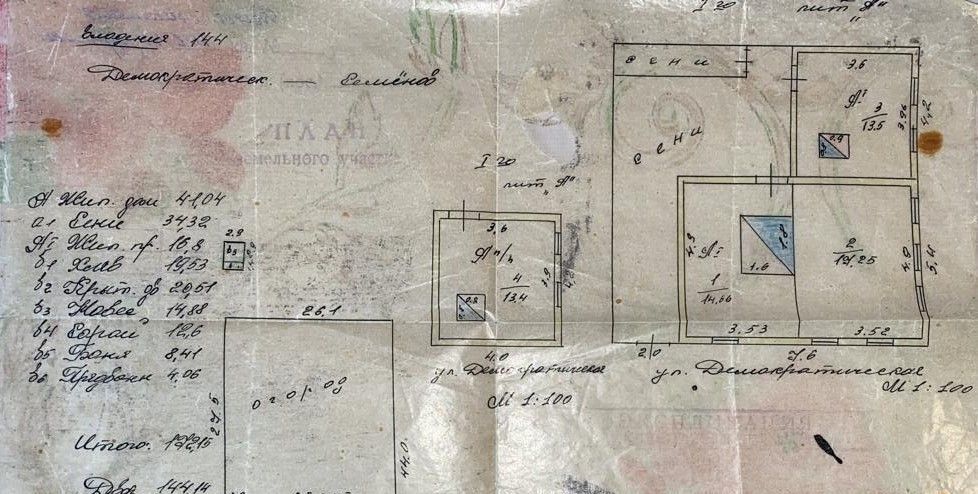 Владения 144
Демократическ. — Семёнов
А Жил. дом 41,04
а1 Сени 34,32
АI Жил. пр. 16,8
б1 Хлев 19,53
б2 Крыт. дв 20,51
б3 Навес 14,88
б4 Сарай 12,6
б5 Баня 8,41
б6 Предбанн 4,06
Итого: 192,15
Двор 1414
2.9
26.1
27,5
44.0
огород
I эо
лит „А"
3,6
4
13,4
3,9
4,2
0,8
4.0
ул. Демократическая
М 1:100
I эо
лит „А"
сени
сени
3,6
АI
3
13,5
3,96
4,2
0,9
4,9
АI
1
14,66
1.6
1,8
2
17,25
4,9
5,4
3.53
3.52
2,0
7,6
ул. Демократическая
М 1:100